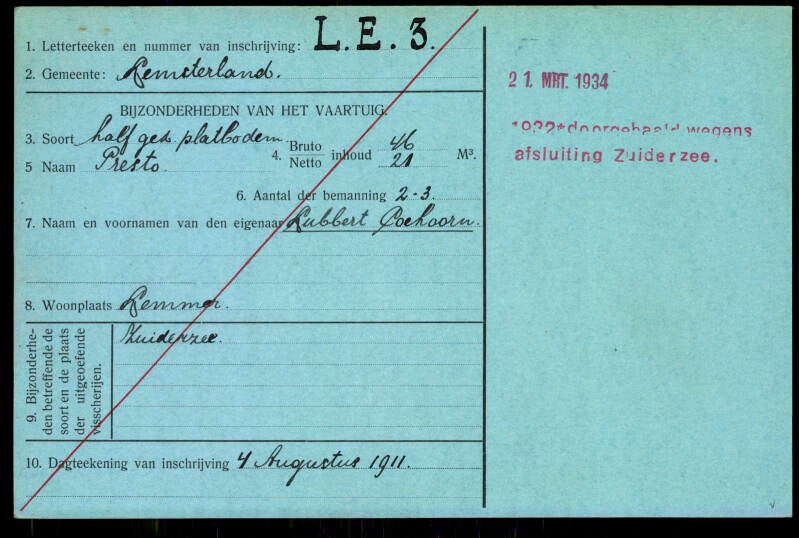 1. Letterteeken en nummer van inschrijving: L.E. 3.
2. Gemeente: Lemsterland.
BIJZONDERHEDEN VAN HET VAARTUIG.
3. Soort half ged. platbodem
4. Bruto inhoud 46 M³.
Netto 21
5 Naam Presto.
6. Aantal der bemanning 2-3.
7. Naam en voornamen van den eigenaar Lubbert Coehoorn.
8. Woonplaats Lemmer.
9. Bijzonderhe-
den betreffende de
soort en de plaats
der uitgeoefende
visscherijen.
Zuiderzee.
10. Dagteekening van inschrijving 4 Augustus 1911.
21. MRT. 1934
1932 doorgehaald wegens
afsluiting Zuiderzee.